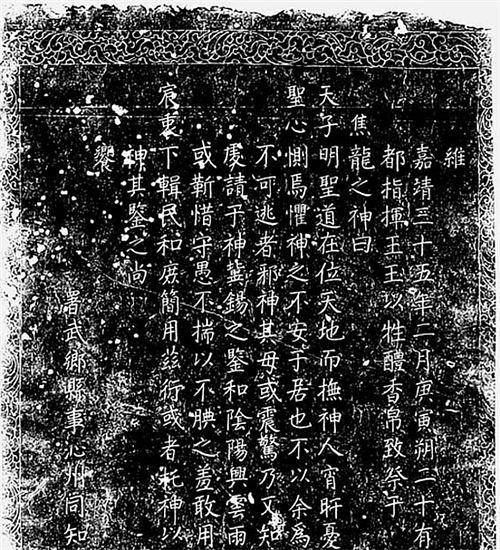 維
嘉靖三十五年二月庚寅朔二十有
都指揮王王以牲醴香帛致祭于
焦龍之神曰
天子明聖道在位天地而撫神人宵旰憂
聖心惻焉懼神之不安于居也不以余為
不可逃者邪神其毋或震驚乃又知
虔請于神冀錫之鑒和陰陽興雲雨
或靳惜守愚不揣以不腆之羞敢用
宸衷下輯民和庶簡用茲行或者託神以
神其鑒之尚
饗
署武鄉縣事沁州同知